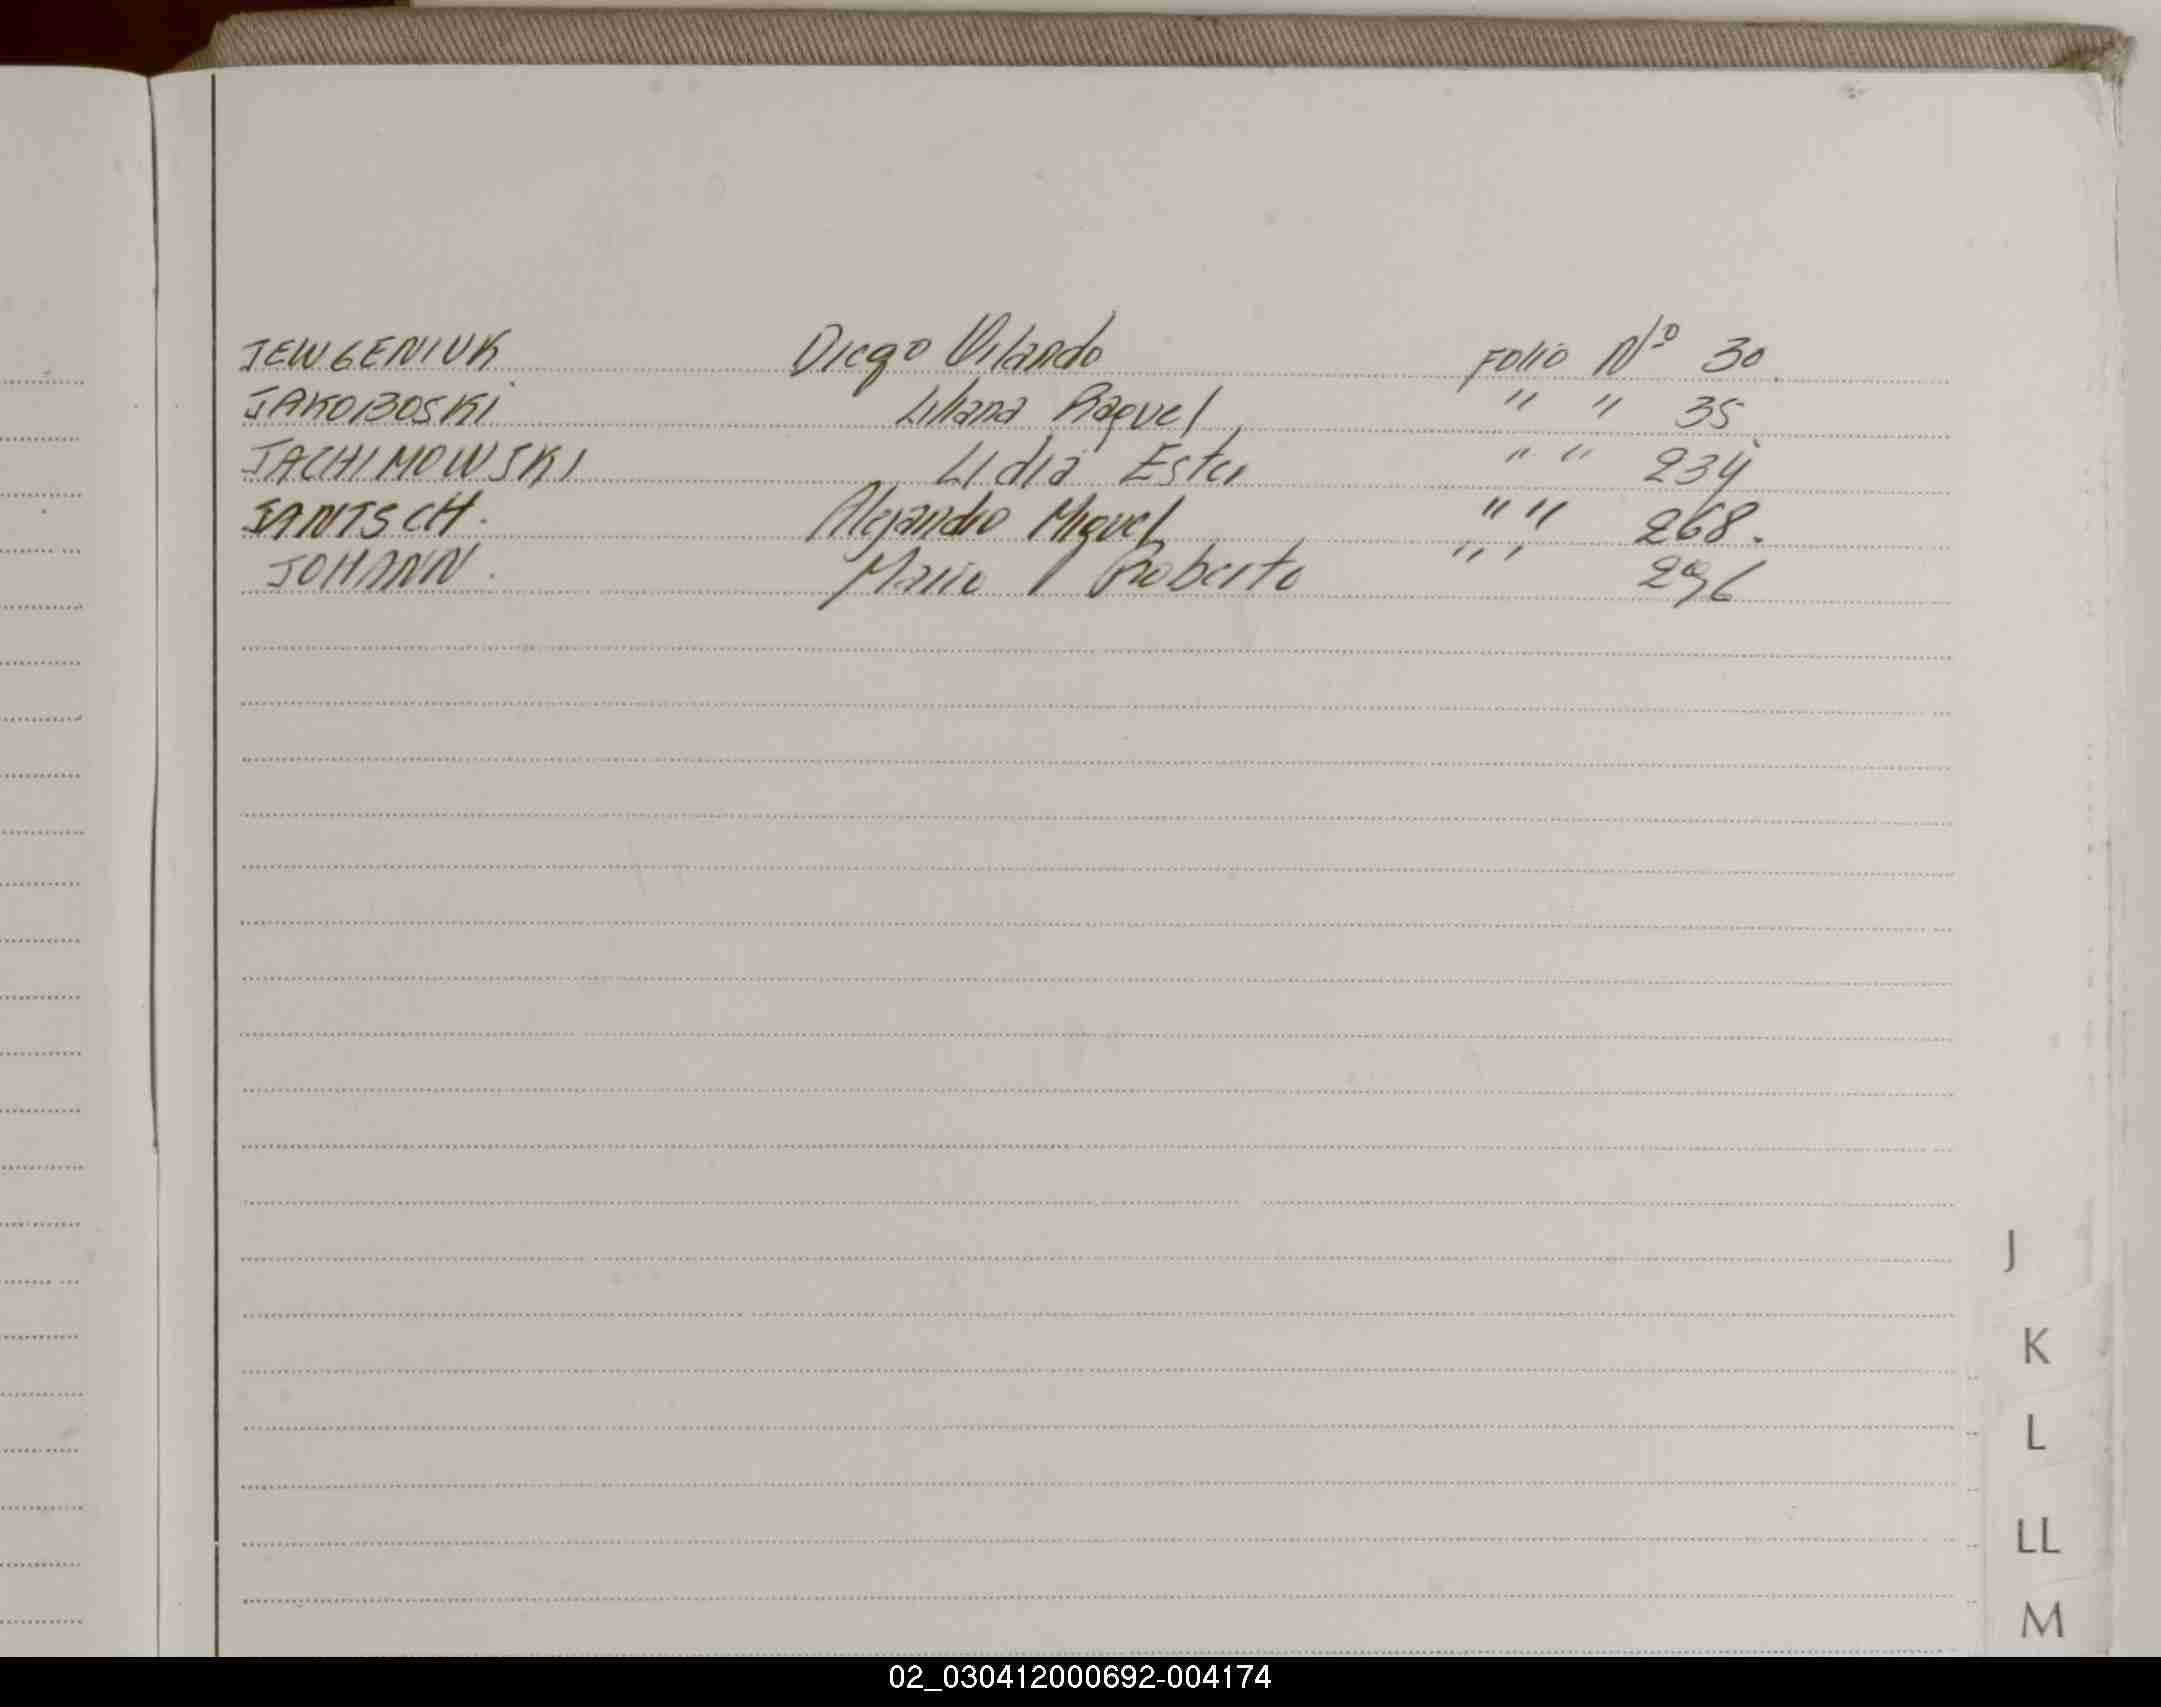 JEWGENIUK Diego Orlando Folio Nº 30.
JAKOBOSKI Liliana Raquel " " 35
JACHIMOWSKI Lidia Ester " " 234
JANTSCH. Alejandro Miguel " " 268.
JOHANN. Mario Roberto " " 296
J
K
L
LL
M
02_030412000692-004174